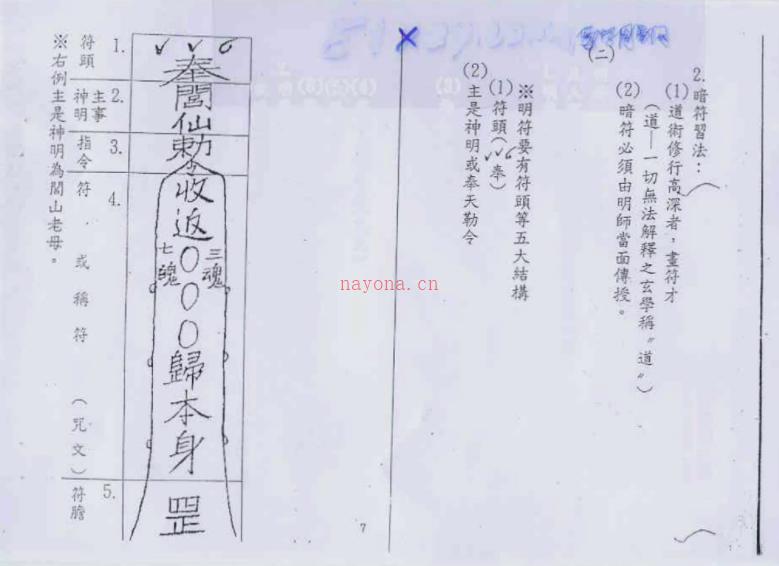 (二)
2.暗符習法：
(1)道術修行高深者，畫符才
(道—一切無法解釋之玄學稱〝道〞)
(2)暗符必須由明師當面傳授。
※明符要有符頭等五大結構
(1)符頭(✓✓6奉)
(2)主是神明或奉天勒令
nayona.cn
7
1.符頭
2.主事神明
3.指令
4.符．或稱符(咒文)
5.符膽
✓✓6
奉
閭
仙
勅令
收
返
三魂
七魄
○
○
○
歸
本
身
罡
※右例主是神明為閭山老母。